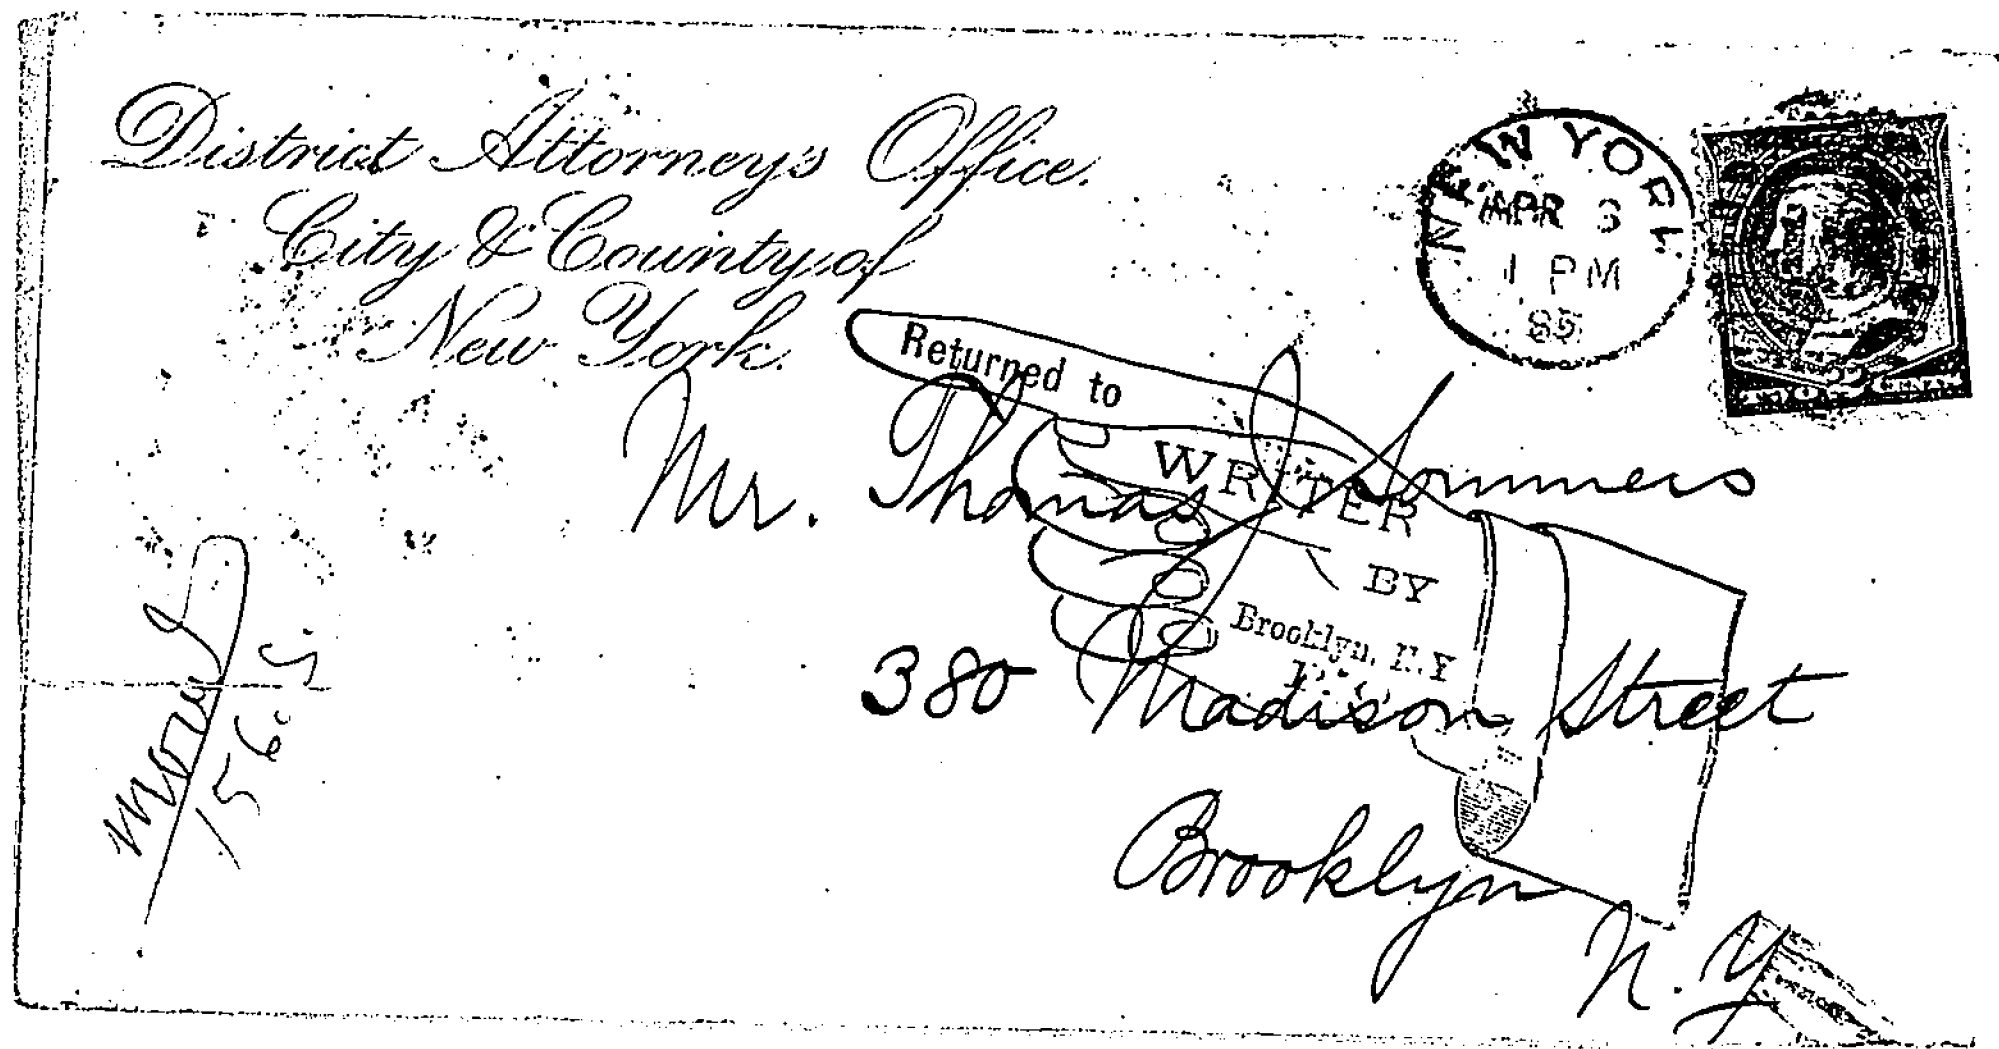 District Attorney's Office.
City & County of
New York.
NEW YORK
APR 3
1 PM
85
Returned to
WRITER
BY
Brooklyn, N.Y
Mr. Thomas J Sommers
380 Madison Street
Brooklyn
N.Y
156